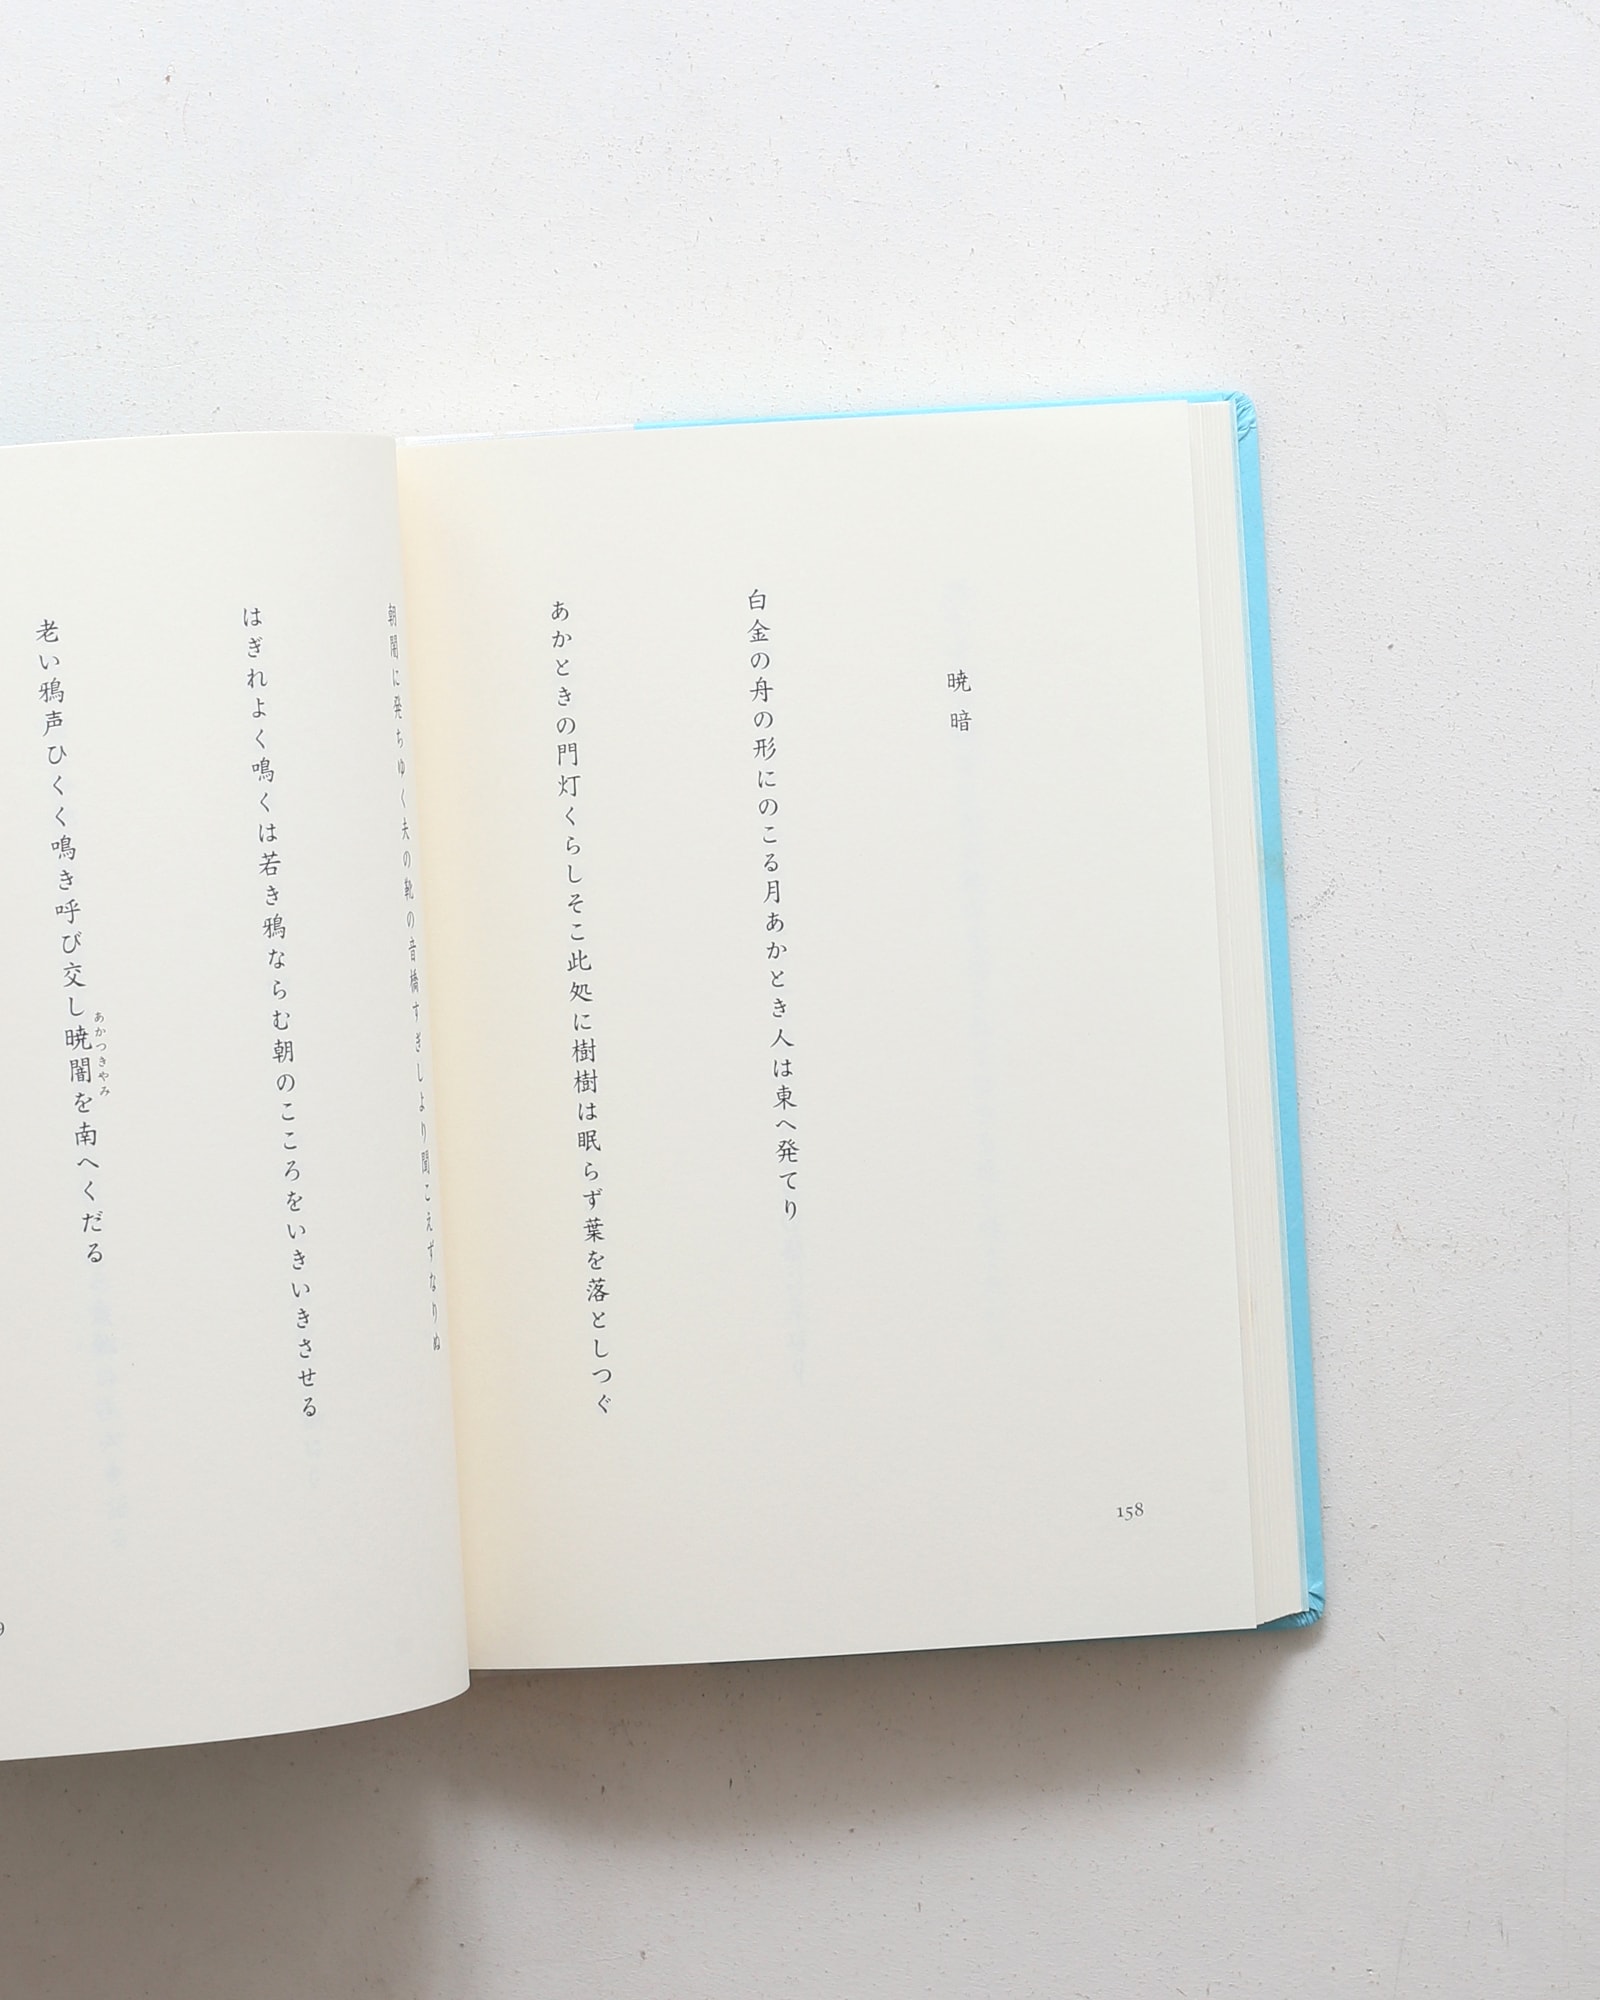 暁暗
白金の舟の形にのこる月あかとき人は東へ発てり
あかときの門灯くらしそこ此処に樹樹は眠らず葉を落としつぐ
158
朝闇に発ちゆく夫の靴の音橋すぎしより聞こえずなりぬ
はぎれよく鳴くは若き鴉ならむ朝のこころをいきいきさせる
老い鴉声ひくく鳴き呼び交し暁闇を南へくだる
あかつきやみ
9